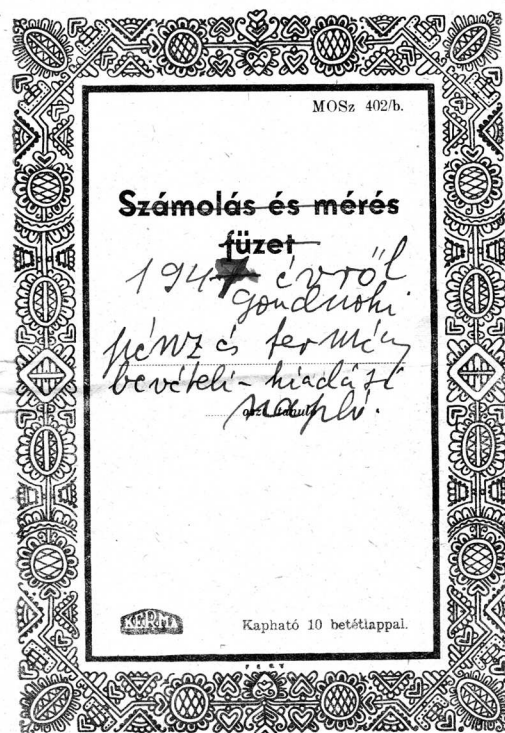 MOSz 402/b.
Számolás és mérés
füzet
194 évről
gondnoki
pénz és termény
bevételi - kiadási
napló.
oszt. tanuló
KERMI
Kapható 10 betétlappal.